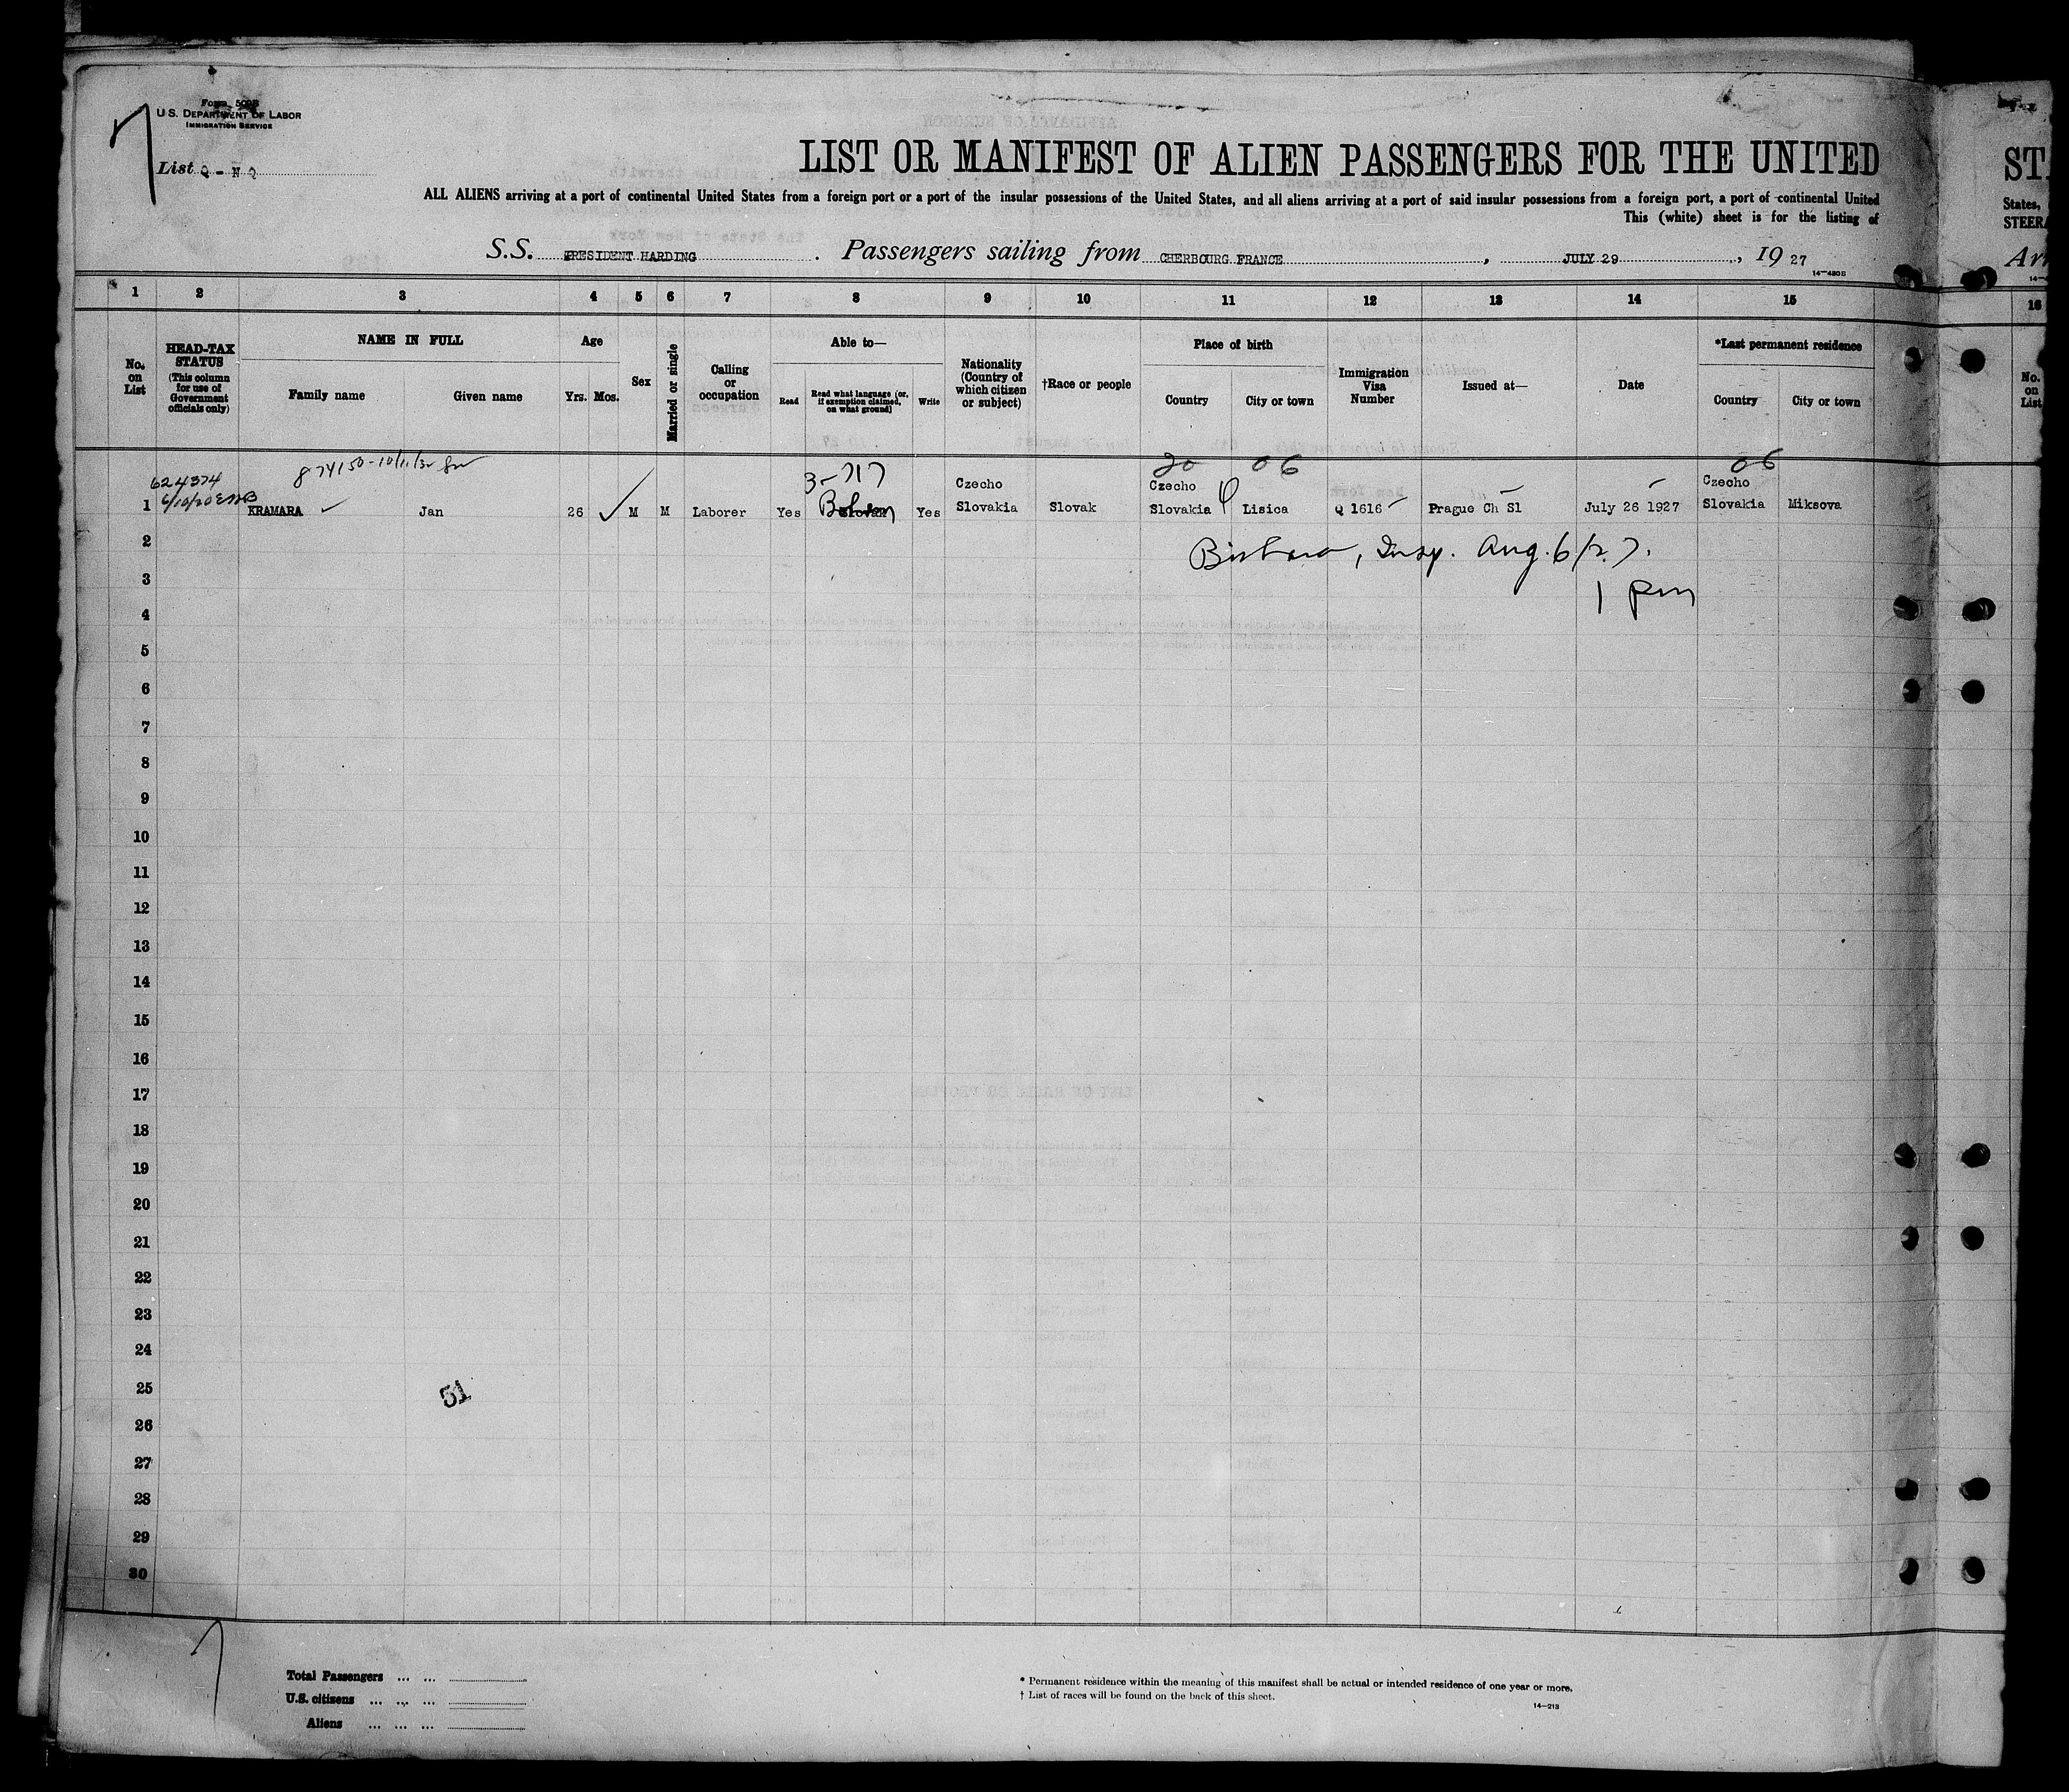 Form 500B
U. S. DEPARTMENT OF LABOR
IMMIGRATION SERVICE
List Q - N Q
LIST OR MANIFEST OF ALIEN PASSENGERS FOR THE UNITED
ST
ALL ALIENS arriving at a port of continental United States from a foreign port or a port of the insular possessions of the United States, and all aliens arriving at a port of said insular possessions from a foreign port, a port of continental United
States,
This (white) sheet is for the listing of
STEERA
S.S. PRESIDENT HARDING . Passengers sailing from CHERBOURG FRANCE , JULY 29 , 19 27
Arr
14-430B
1 2 3 4 5 6 7 8 9 10 11 12 13 14 15 16
No. on List
HEAD-TAX STATUS (This column for use of Government officials only)
NAME IN FULL
Family name Given name
Age
Yrs. Mos.
Sex
Married or single
Calling or occupation
Able to—
Read
Read what language (or, if exemption claimed, on what ground)
Write
Nationality (Country of which citizen or subject)
†Race or people
Place of birth
Country City or town
Immigration Visa Number
Issued at—
Date
*Last permanent residence
Country City or town
No. on List
874150-10/11/32
624374
3-717
20 06 06
1 KRAMARA Jan 26 M M Laborer Yes Slovak Bohem Yes Czecho Slovakia Slovak Czecho Slovakia Lisica Q 1616 Prague Ch Sl July 26 1927 Czecho Slovakia Miksova
2
Insp. Aug. 6/27.
3
1 pm
4
5
6
7
8
9
10
11
12
13
14
15
16
17
18
19
20
21
22
23
24
25
51
26
27
28
29
30
Total Passengers ... ...
U.S. citizens ... ... ...
Aliens ... ... ...
* Permanent residence within the meaning of this manifest shall be actual or intended residence of one year or more.
† List of races will be found on the back of this sheet.
14-213